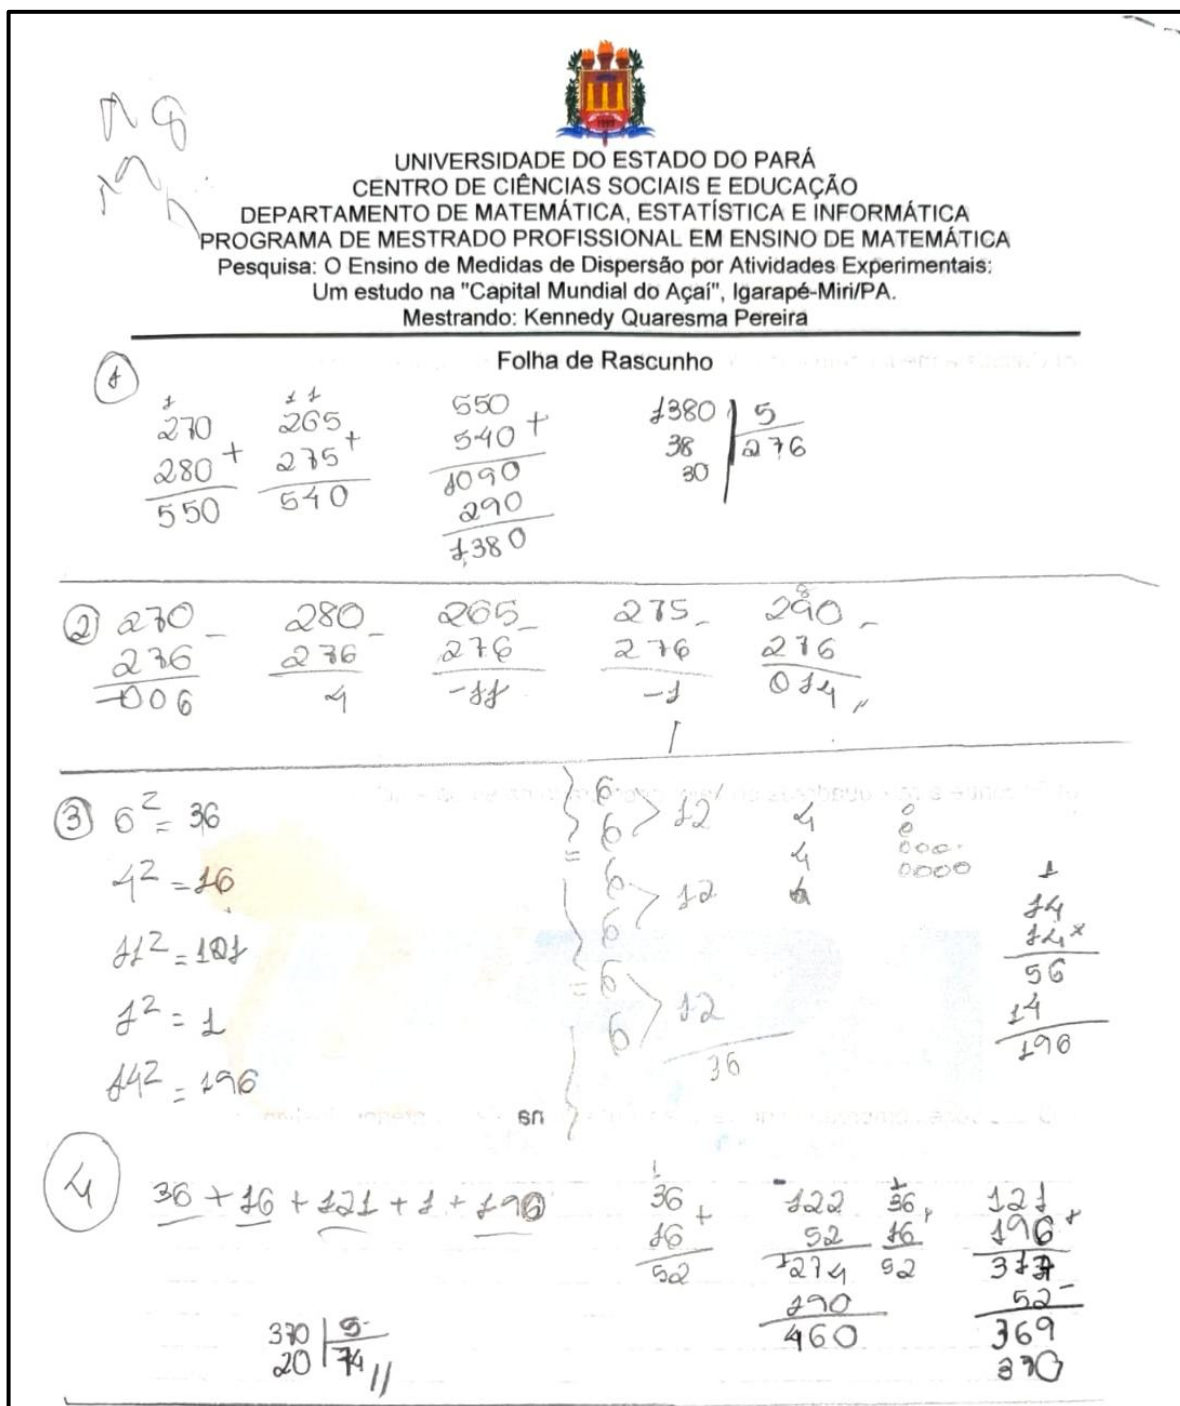 UNIVERSIDADE DO ESTADO DO PARÁ
CENTRO DE CIÊNCIAS SOCIAIS E EDUCAÇÃO
DEPARTAMENTO DE MATEMÁTICA, ESTATÍSTICA E INFORMÁTICA
PROGRAMA DE MESTRADO PROFISSIONAL EM ENSINO DE MATEMÁTICA
Pesquisa: O Ensino de Medidas de Dispersão por Atividades Experimentais:
Um estudo na "Capital Mundial do Açaí", Igarapé-Miri/PA.
Mestrando: Kennedy Quaresma Pereira
Folha de Rascunho
1
1 1 1
270 265 550 1380 5
280 + 275 + 540 + 38 276
550 540 1090 30
290
1380
2 270 - 280 - 265 - 275 - 290 -
276 276 276 276 276
-006 4 -11 -1 014
3 6² = 36
4² = 16
11² =
1² = 1
14² = 196
6 6 12
6 6 12
6 6 12
36
4
4
1
14
14 x
56
14
196
4 36 + 16 + 121 + 1 + 196
36 + 122 36 + 121 +
16 52 16 196
52 274 52 317
190 52
460 369
370
370 5
20 74